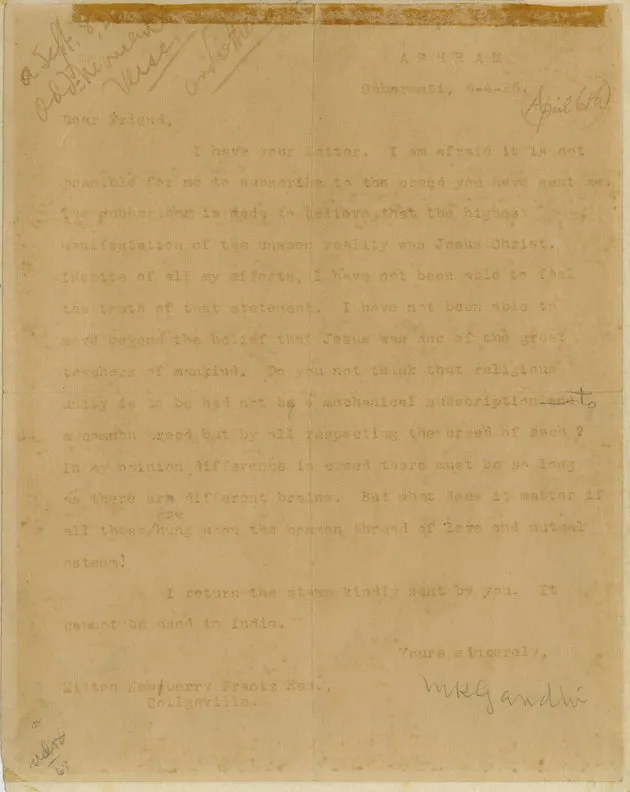 a Sept. 8,
Verse
ASHRAM
Sabarmati, 6-4-26.
(April 6th)
Dear Friend,
I have your letter. I am afraid it is not
possible for me to subscribe to the creed you have sent me.
The subscriber is made to believe that the highest
manifestation of the unseen reality was Jesus Christ.
Inspite of all my efforts, I have not been able to feel
the truth of that statement. I have not been able to
move beyond the belief that Jesus was one of the great
teachers of mankind. Do you not think that religious
unity is to be had not by a mechanical subscription to
a common creed but by all respecting the creed of each ?
In my opinion difference in creed there must be so long
as there are different brains. But what does it matter if
all these are hung upon the common thread of love and mutual
esteem!
I return the stamp kindly sent by you. It
cannot be used in India.
Yours sincerely,
MKGandhi
Milton Newberry Frantz Esq.,
Collgeville.